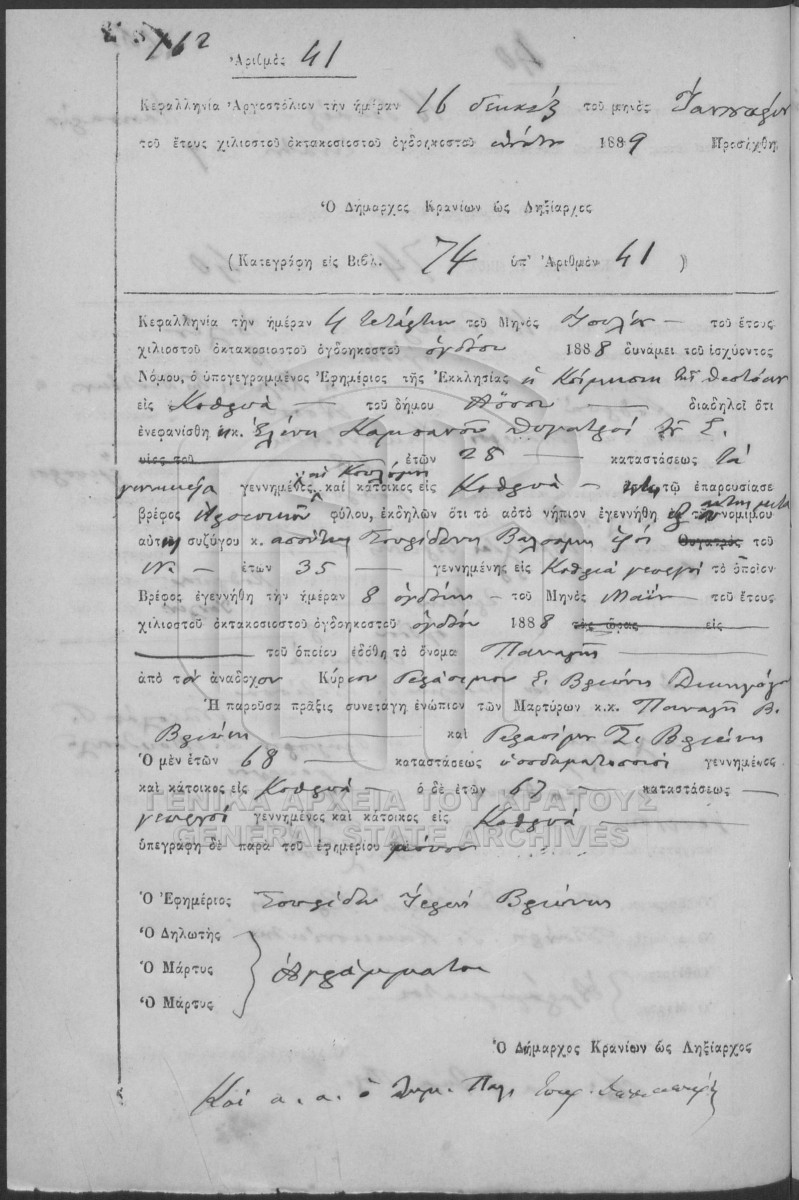 162
Ἀριθμὸς 41
Κεφαλληνία Ἀργοστόλιον τὴν ἡμέραν 16 δεκαέξ τοῦ μηνὸς Ἰανουαρίου
τοῦ ἔτους χιλιοστοῦ ὀκτακοσιοστοῦ ὀγδοηκοστοῦ ἐνάτου 1889 Προσήχθη
Ὁ Δήμαρχος Κρανίων ὡς Ληξίαρχος
(Κατεγράφη εἰς Βιβλ. 74 ὑπ' Ἀριθμὸν 41)
Κεφαλληνία τὴν ἡμέραν 4 τετάρτην τοῦ Μηνὸς Ἰουλίου τοῦ ἔτους
χιλιοστοῦ ὀκτακοσιοστοῦ ὀγδοηκοστοῦ ὀγδόου 1888 δυνάμει τοῦ ἰσχύοντος
Νόμου, ὁ ὑπογεγραμμένος Ἐφημέριος τῆς Ἐκκλησίας ἡ Κοίμησις τῆς Θεοτόκου
εἰς Κοθρέα τοῦ δήμου Ἄσσου διαδηλοῖ ὅτι
ἐνεφανίσθη ἡ κ. Ἑλένη θυγάτηρ τοῦ Σ.
υἱὸς τοῦ ἐτῶν 28 καταστάσεως τὰ
γυναικεῖα γεννημένος καὶ κάτοικος εἰς Κοθρέα τῷ ἐπαρουσίασε
βρέφος ἀρσενικοῦ φύλου, ἐκδηλῶν ὅτι τὸ αὐτὸ νήπιον ἐγεννήθη ἐξ αὐτῆς μετὰ τοῦ νομίμου
αὐτῆς συζύγου κ. Σπυρίδωνος υἱοῦ θυγατρὸς τοῦ
ἐτῶν 35 γεννημένης εἰς Κοθρέα γεωργοῦ τὸ ὁποῖον
Βρέφος ἐγεννήθη τὴν ἡμέραν 8 ὀγδόην τοῦ Μηνὸς Μαΐου τοῦ ἔτους
χιλιοστοῦ ὀκτακοσιοστοῦ ὀγδοηκοστοῦ ὀγδόου 1888 τὰς ὥρας εἰς
τοῦ ὁποίου ἐδόθη τὸ ὄνομα Παναγῆς
ἀπὸ τὸν ἀνάδοχον Κύριον Γεράσιμον Σ. Βλιώνη
Ἡ παροῦσα πρᾶξις συνετάγη ἐνώπιον τῶν Μαρτύρων κ.κ. Παναγῆ Β.
Βλιώνη καὶ Γερασίμου Σ. Βλιώνη
Ὁ μὲν ἐτῶν 68 καταστάσεως γεννημένος
καὶ κάτοικος εἰς Κοθρέα ὁ δὲ ἐτῶν 67 καταστάσεως
γεωργοῦ γεννημένος καὶ κάτοικος εἰς Κοθρέα
ὑπεγράφη δὲ παρὰ τοῦ ἐφημερίου μόνου
ΓΕΝΙΚΑ ΑΡΧΕΙΑ ΤΟΥ ΚΡΑΤΟΥΣ
GENERAL STATE ARCHIVES
Ὁ Ἐφημέριος Σπυρίδων Ἱερεὺς Βλιώνης
Ὁ Δηλωτὴς
Ὁ Μάρτυς ἀγράμματοι
Ὁ Μάρτυς
Ὁ Δήμαρχος Κρανίων ὡς Ληξίαρχος
Καὶ α. α. ὁ